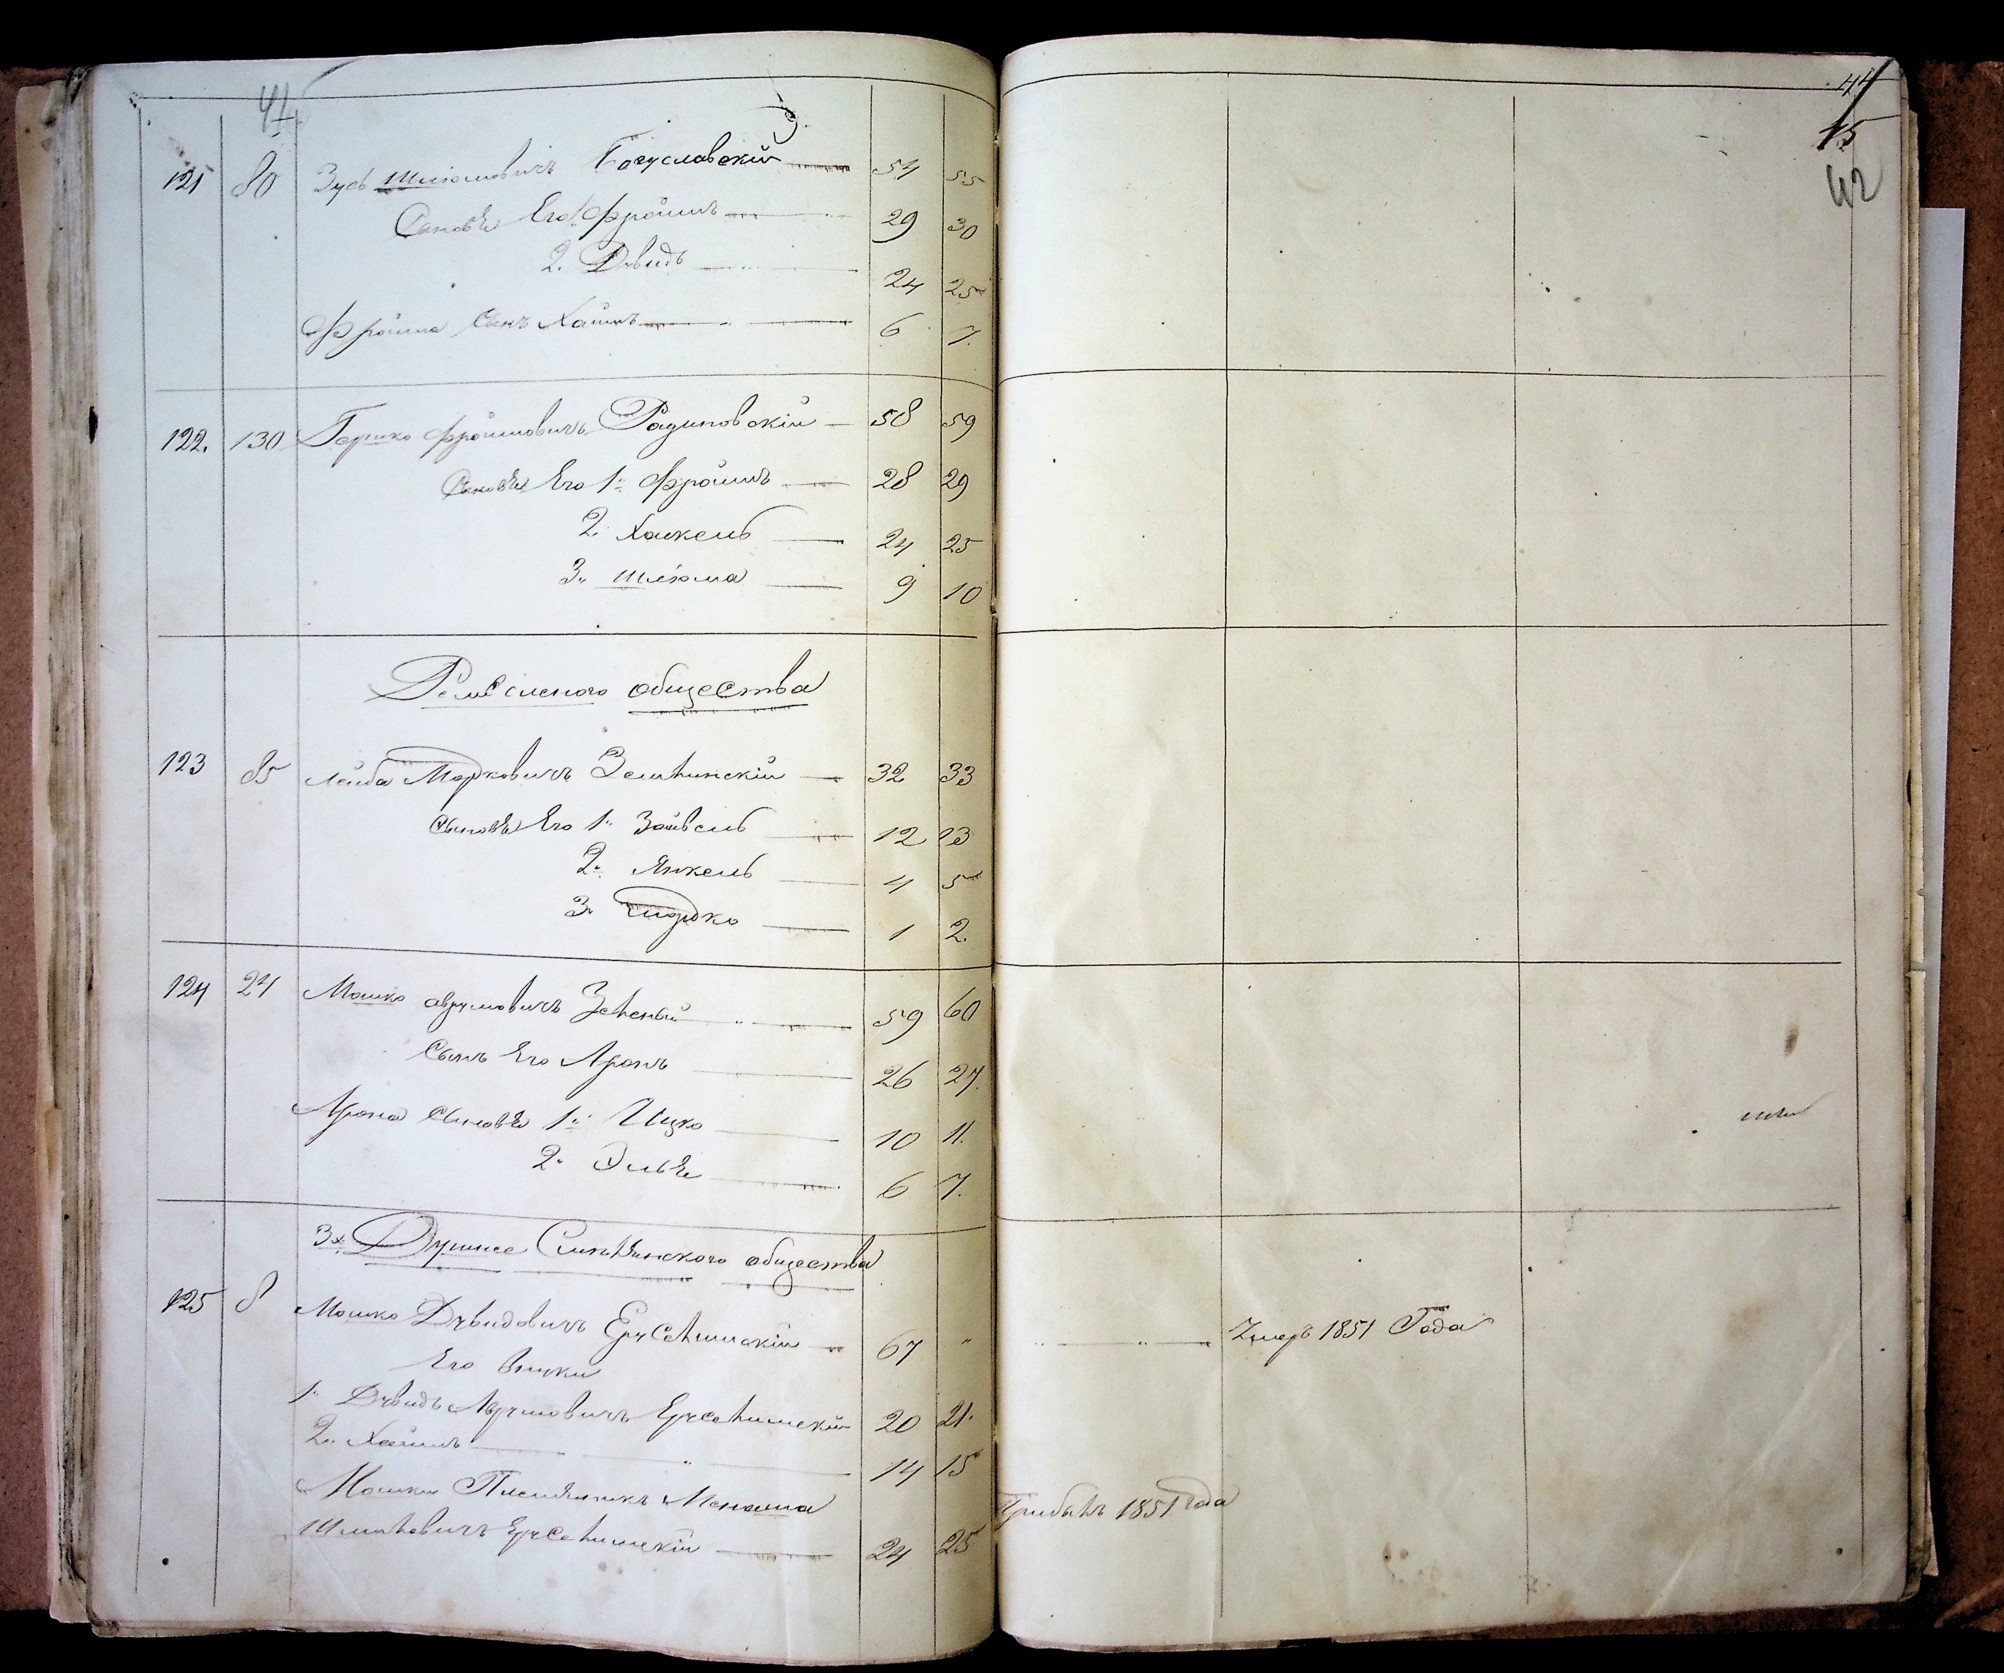 41
121 80 Зусь Шлiомовичъ Богуславскiй 54 55
Сыновья Его 1. Фроимъ 29 30
2. Двидъ 24 25
Фроима сынъ Хаимъ 6 7.
122. 130 Гершко Фроимовичъ 58 59
Сыновья Его 1. Фроимъ 28 29
2. Хаскель 24 25
3. Шлiома 9 10
Ремесленого общества
123 85 Лейба Марковичъ 32 33
Сыновья Его 1. Зейвель 12 13
2. Янкель 4 5
3. 1 2.
124 24 Мошко Аврумовичъ Зеленый 59 60
Сынъ Его Аронъ 26 27.
Арона сыновья 1. Ицко 10 11.
2. Элья 6 7.
3х общества
125 8 Мошко Двидовичъ Ерусалимскiй 67 "
Его внуки
1. Двидъ Аврумовичъ Ерусалимскiй 20 21.
2. Хаимъ 14 15
Мошки Племянникъ Менаша
Ерусалимскiй 24 25
44
15
42
Умеръ 1851 Года
Прибылъ 1851 года